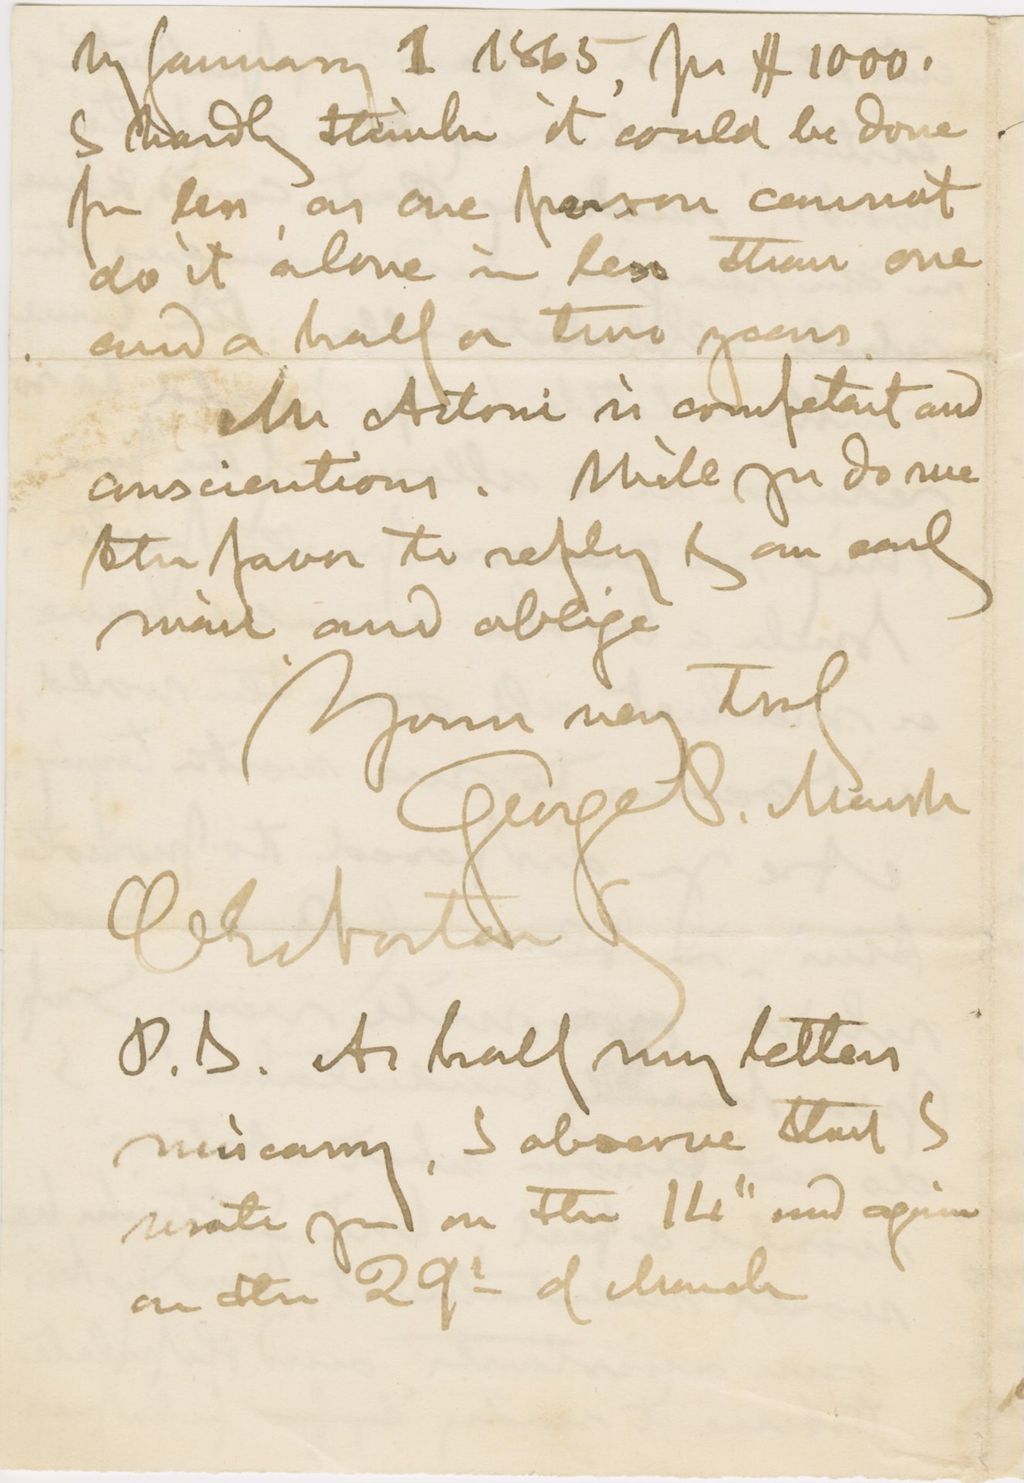 by January 1 1865, for $1000.
I hardly think it could be done
for less, as one person cannot
do it alone in less than one
and a half or two years.
Mr Artoni is competent and
conscientious. Will you do me
the favor to reply by an early
mail and oblige
Yours very truly
George P. Marsh
C E Norton
P.S. As half my letters
miscarry, I observe that I
wrote you on the 14" and again
on the 29th of March